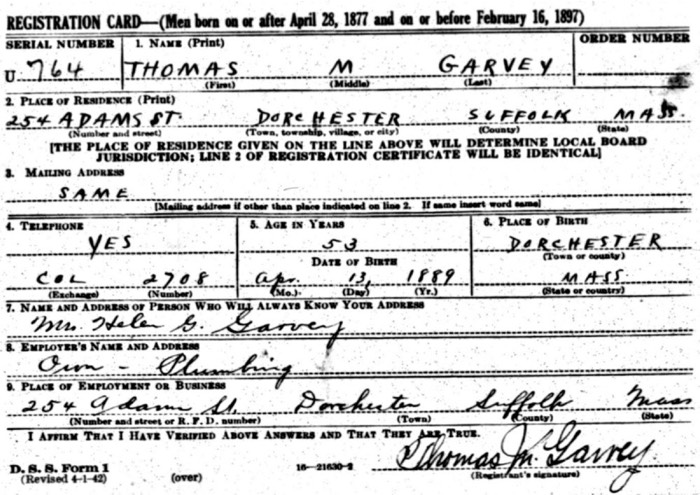 REGISTRATION CARD—(Men born on or after April 28, 1877 and on or before February 16, 1897)
SERIAL NUMBER 1. NAME (Print) ORDER NUMBER
U 764 THOMAS M GARVEY
(First) (Middle) (Last)
2. PLACE OF RESIDENCE (Print)
254 ADAMS ST. DORCHESTER SUFFOLK MASS.
(Number and street) (Town, township, village, or city) (County) (State)
[THE PLACE OF RESIDENCE GIVEN ON THE LINE ABOVE WILL DETERMINE LOCAL BOARD
JURISDICTION; LINE 2 OF REGISTRATION CERTIFICATE WILL BE IDENTICAL]
3. MAILING ADDRESS
SAME
[Mailing address if other than place indicated on line 2. If same insert word same]
4. TELEPHONE 5. AGE IN YEARS 6. PLACE OF BIRTH
YES 53 DORCHESTER
DATE OF BIRTH (Town or county)
COL 2708 Apr. 13, 1889 MASS
(Exchange) (Number) (Mo.) (Day) (Yr.) (State or country)
7. NAME AND ADDRESS OF PERSON WHO WILL ALWAYS KNOW YOUR ADDRESS
Mrs. Helen G. Garvey
8. EMPLOYER'S NAME AND ADDRESS
Own - Plumbing
9. PLACE OF EMPLOYMENT OR BUSINESS
254 Adams St. Dorchester Suffolk Mass
(Number and street or R. F. D. number) (Town) (County) (State)
I AFFIRM THAT I HAVE VERIFIED ABOVE ANSWERS AND THAT THEY ARE TRUE.
Thomas M. Garvey
D. S. S. Form 1 16—21630-2 (Registrant's signature)
(Revised 4-1-42) (over)